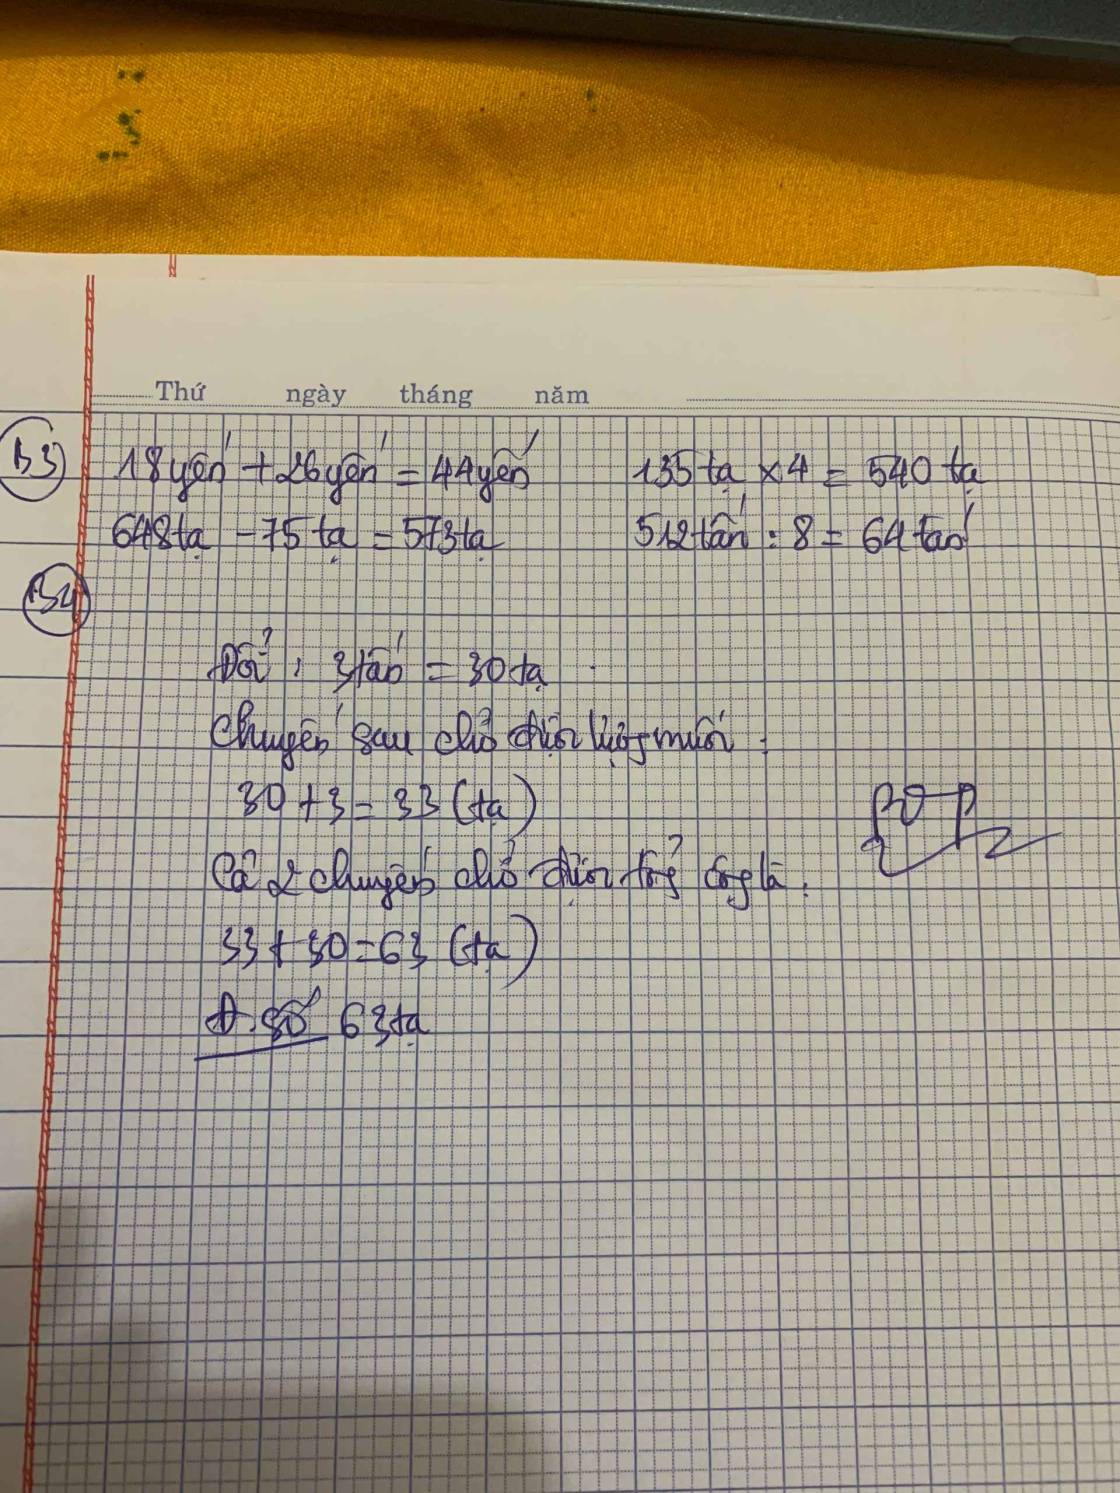 Thứ ngày tháng năm
B3 18 yến + 26 yến = 44 yến 135 tạ x 4 = 540 tạ
648 tạ - 75 tạ = 573 tạ 512 tấn : 8 = 64 tấn
B4
Đổi : 3 tấn = 30 tạ
Chuyến sau chở được lượng muối :
30 + 3 = 33 (tạ)
Cả 2 chuyến chở được tổng cộng là :
33 + 30 = 63 (tạ)
Đ. số 63 tạ